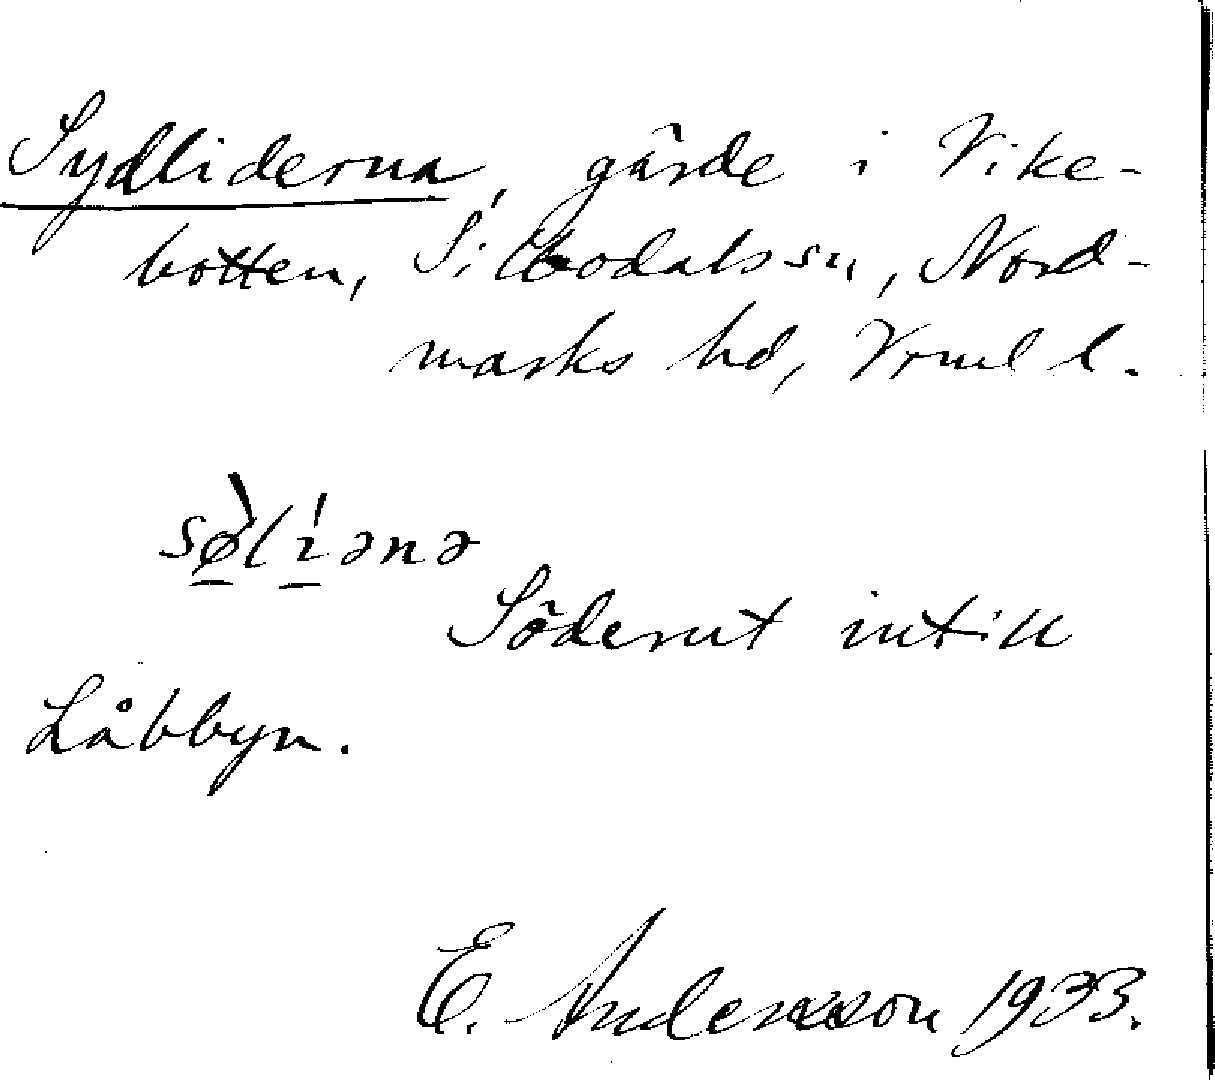 Sydliderna, gärde i Vike-
botten, Sillbodals sn, Nord-
marks hd, Vrml l.
sø̠̀lı̠́ənə
Söderut intill
Låbbyn.
E. Andersson 1933.